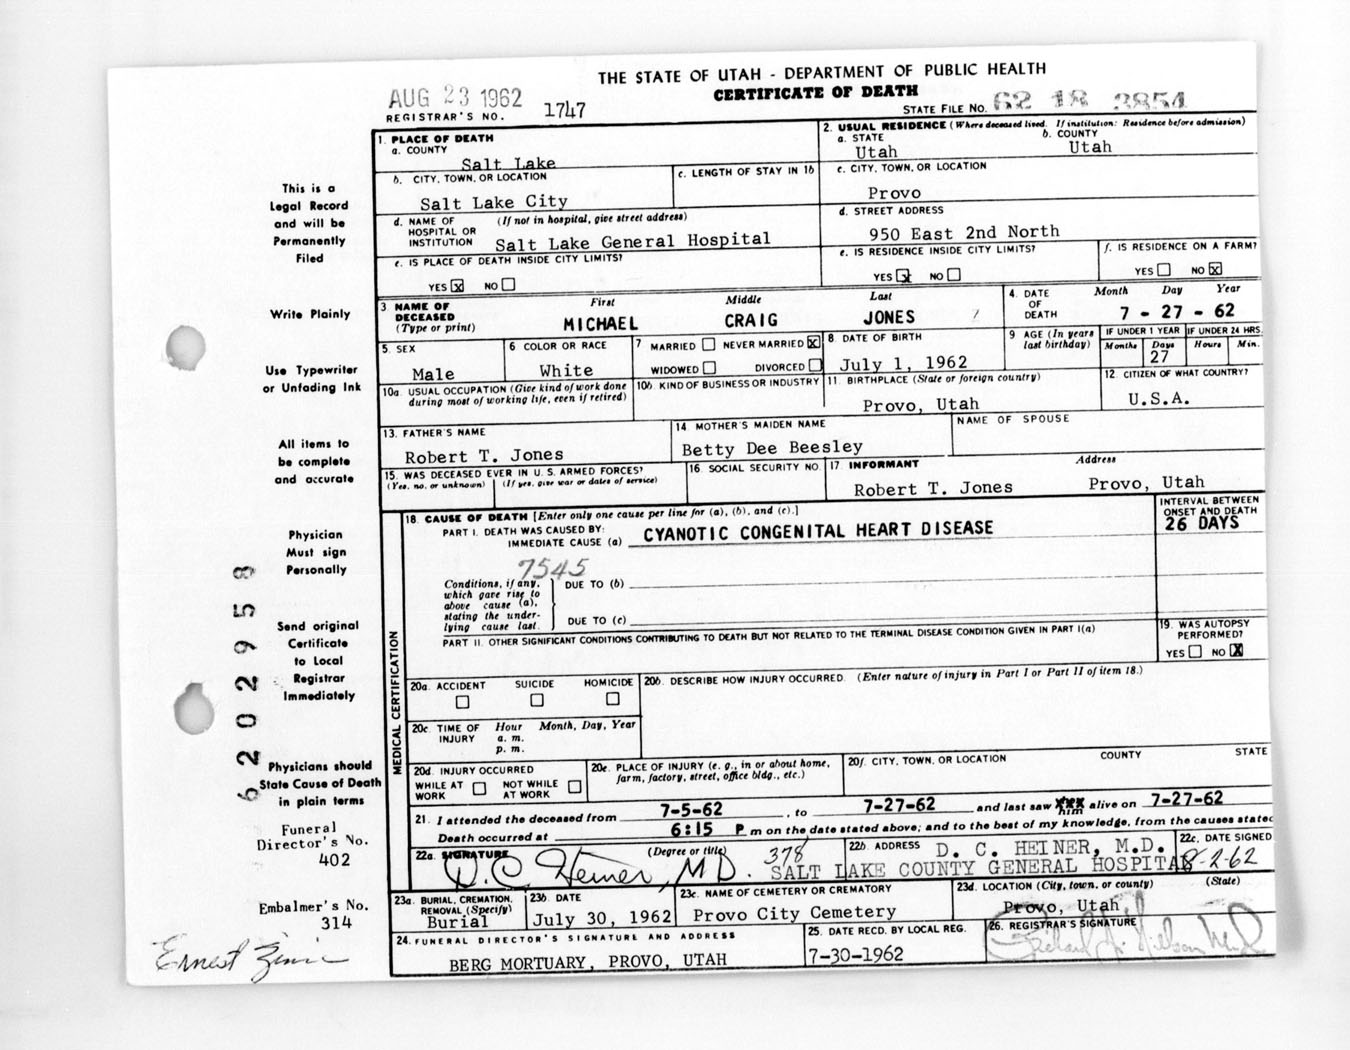 THE STATE OF UTAH - DEPARTMENT OF PUBLIC HEALTH
CERTIFICATE OF DEATH
AUG 23 1962
REGISTRAR'S NO. 1747
STATE FILE NO. 62 18 2854
1. PLACE OF DEATH
a. COUNTY
Salt Lake
2. USUAL RESIDENCE (Where deceased lived. If institution: Residence before admission)
a. STATE
Utah
b. COUNTY
Utah
b. CITY, TOWN, OR LOCATION
Salt Lake City
c. LENGTH OF STAY IN 1b
c. CITY, TOWN, OR LOCATION
Provo
d. NAME OF HOSPITAL OR INSTITUTION (If not in hospital, give street address)
Salt Lake General Hospital
d. STREET ADDRESS
950 East 2nd North
e. IS PLACE OF DEATH INSIDE CITY LIMITS?
YES X NO
e. IS RESIDENCE INSIDE CITY LIMITS?
YES X NO
f. IS RESIDENCE ON A FARM?
YES NO X
3 NAME OF DECEASED (Type or print)
First Middle Last
MICHAEL CRAIG JONES
4. DATE OF DEATH
Month Day Year
7 - 27 - 62
5. SEX
Male
6 COLOR OR RACE
White
7 MARRIED NEVER MARRIED X
WIDOWED DIVORCED
8. DATE OF BIRTH
July 1, 1962
9 AGE (In years last birthday)
IF UNDER 1 YEAR
Months Days
27
IF UNDER 24 HRS.
Hours Min.
10a. USUAL OCCUPATION (Give kind of work done during most of working life, even if retired)
10b. KIND OF BUSINESS OR INDUSTRY
11. BIRTHPLACE (State or foreign country)
Provo, Utah
12. CITIZEN OF WHAT COUNTRY?
U.S.A.
13. FATHER'S NAME
Robert T. Jones
14. MOTHER'S MAIDEN NAME
Betty Dee Beesley
NAME OF SPOUSE
15. WAS DECEASED EVER IN U. S. ARMED FORCES?
(Yes, no, or unknown) (If yes, give war or dates of service)
16. SOCIAL SECURITY NO.
17. INFORMANT Address
Robert T. Jones Provo, Utah
18. CAUSE OF DEATH [Enter only one cause per line for (a), (b), and (c).]
PART I. DEATH WAS CAUSED BY:
IMMEDIATE CAUSE (a) CYANOTIC CONGENITAL HEART DISEASE
INTERVAL BETWEEN ONSET AND DEATH
26 DAYS
7545
Conditions, if any, which gave rise to above cause (a), stating the underlying cause last.
DUE TO (b)
DUE TO (c)
PART II. OTHER SIGNIFICANT CONDITIONS CONTRIBUTING TO DEATH BUT NOT RELATED TO THE TERMINAL DISEASE CONDITION GIVEN IN PART I(a)
19. WAS AUTOPSY PERFORMED?
YES NO X
MEDICAL CERTIFICATION
20a. ACCIDENT SUICIDE HOMICIDE
20b. DESCRIBE HOW INJURY OCCURRED. (Enter nature of injury in Part I or Part II of item 18.)
20c. TIME OF INJURY
Hour Month, Day, Year
a. m.
p. m.
20d. INJURY OCCURRED
WHILE AT WORK NOT WHILE AT WORK
20e. PLACE OF INJURY (e. g., in or about home, farm, factory, street, office bldg., etc.)
20f. CITY, TOWN, OR LOCATION COUNTY STATE
21. I attended the deceased from 7-5-62, to 7-27-62 and last saw XXX him alive on 7-27-62
Death occurred at 6:15 P m on the date stated above; and to the best of my knowledge, from the causes stated
22a. SIGNATURE (Degree or title)
D. C. Heiner, M D.
378
22b. ADDRESS D. C. HEINER, M.D.
SALT LAKE COUNTY GENERAL HOSPITAL
22c. DATE SIGNED
8-2-62
23a. BURIAL, CREMATION, REMOVAL (Specify)
Burial
23b. DATE
July 30, 1962
23c. NAME OF CEMETERY OR CREMATORY
Provo City Cemetery
23d. LOCATION (City, town, or county) (State)
Provo, Utah
24. FUNERAL DIRECTOR'S SIGNATURE AND ADDRESS
BERG MORTUARY, PROVO, UTAH
25. DATE RECD. BY LOCAL REG.
7-30-1962
26. REGISTRAR'S SIGNATURE
This is a
Legal Record
and will be
Permanently
Filed
Write Plainly
Use Typewriter
or Unfading Ink
All items to
be complete
and accurate
Physician
Must sign
Personally
Send original
Certificate
to Local
Registrar
Immediately
Physicians should
State Cause of Death
in plain terms
Funeral
Director's No.
402
Embalmer's No.
314
Ernest
6202958